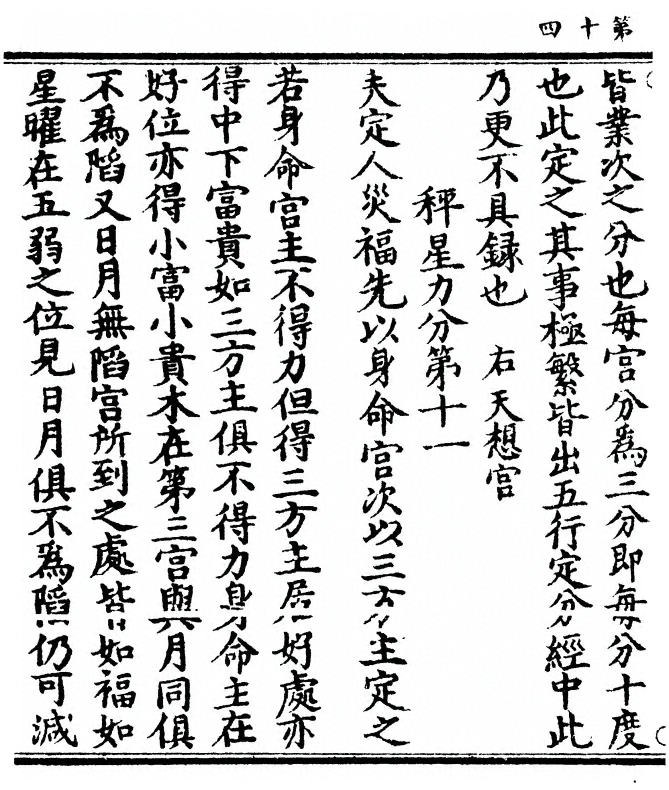 第十四
皆業次之分也每宫分為三分即每分十度
也此定之其事極繁皆出五行定分經中此
乃更不具録也　右天想宫
秤星力分第十一
夫定人災福先以身命宫次以三方主定之
若身命宫主不得力但得三方主居好處亦
得中下富貴如三方主俱不得力身命主在
好位亦得小富小貴木在第三宫與月同俱
不為陷又日月無陷宫所到之處皆如福如
星曜在五弱之位見日月俱不為陷仍可減